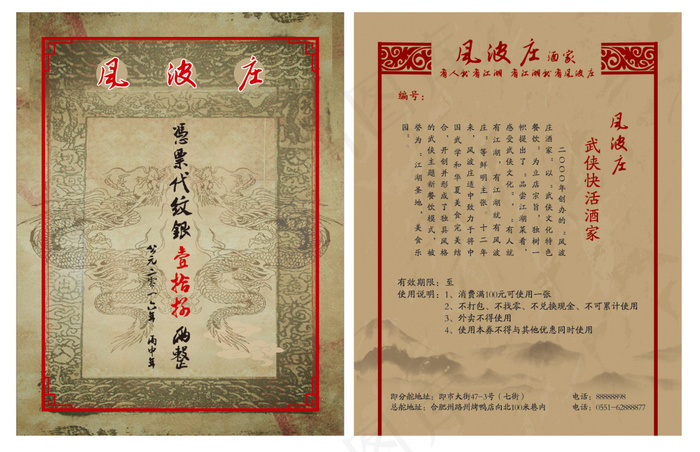 風波庄
憑票代紋銀壹拾捌兩整
公元二零一六年 丙申年
風波庄酒家
有人就有江湖 有江湖就有風波庄
编号：
風波庄
武侠快活酒家
二〇〇〇年创办的“风波
庄酒家”以“武侠文化特色
餐饮”为立店宗旨，独树一
帜提出了：“品尝江湖菜肴，
感受武侠文化”，“有人就
有江湖，有江湖就有风波
庄”等鲜明主张，十二年
来，风波庄适中致力于将中
国武学和华夏美食完美结
合，开创并形成了独具风格
的武侠主题新餐饮模式，被
誉为“江湖圣地，美食乐
园”。
有效期限：至
使用说明：1、消费满100元可使用一张
2、不打包、不找零、不兑换现金、不可累计使用
3、外卖不得使用
4、使用本券不得与其他优惠同时使用
即分舵地址：即市大街47-3号（七街） 电话：88888898
总舵地址：合肥州路州烤鸭店向北100米巷内 电话：0551-62888877